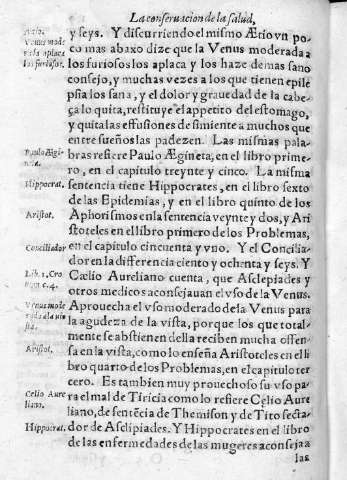 La conseruacion de la salud,
y seys. Y discurriendo el mismo Ætio vn po-
Venus mode
rada aplaca
los furiosos.
co mas abaxo dize que la Venus moderada a
los furiosos los aplaca y los haze de mas sano
consejo, y muchas vezes a los que tienen epile
psia los sana, y el dolor y grauedad de la cabe-
ça lo quita, restituye el appetito del estomago,
y quita las effusiones de simiente a muchos que
entre sueños las padezen. Las mismas pala-
Paulo Ægi-
neta.
bras refiere Paulo Ægineta, en el libro prime-
ro, en el capitulo treynte y cinco. La misma
Hippocrat.
sentencia tiene Hippocrates, en el libro sexto
de las Epidemias, y en el libro quinto de los
Aristot.
Aphorismos en la sentencia veynte y dos, y Ari
stoteles en el libro primero de los Problemas,
Conciliador
en el capitulo cincuenta y vno. Y el Concilia-
dor en la differencia ciento y ochenta y seys. Y
Lib. 1. Cro
c. 4.
Cælio Aureliano cuenta, que Asclepiades y
otros medicos aconsejauan el vso de la Venus.
Venus mode
rada
Aprouecha el vso moderado de la Venus para
la agudeza de la vista, porque los que total-
mente se abstienen della reciben mucha offen-
Aristot.
sa en la vista, como lo enseña Aristoteles en el li
bro quarto de los Problemas, en el capitulo ter
cero. Es tambien muy prouechoso su vso pa-
Celio Aure
liano.
ra el mal de Tiricia como lo refiere Cęlio Aure
liano, de sentẽcia de Themison y de Tito secta-
Hippocrat.
dor de Asclipiades. Y Hippocrates en el libro
de las enfermedades de las mugeres aconseja a
las